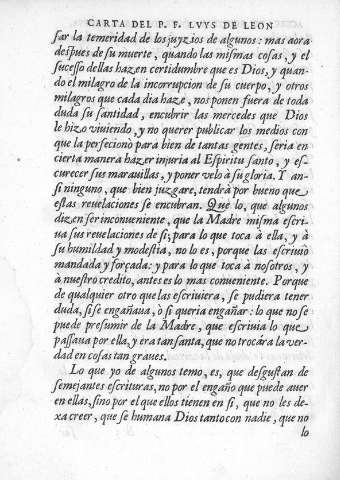 CARTA DEL P. F. LVYS DE LEON
sar la temeridad de los juyzios de algunos: mas aora
despues de su muerte, quando las mismas cosas, y el
sucesso dellas hazen certidumbre que es Dios, y quan-
do el milagro de la incorrupcion de su cuerpo, y otros
milagros que cada dia haze, nos ponen fuera de toda
duda su santidad, encubrir las mercedes que Dios
le hizo viuiendo, y no querer publicar los medios con
que la perfecionò para bien de tantas gentes, seria en
cierta manera hazer injuria al Espiritu santo, y es-
curecer sus marauillas, y poner velo à su gloria. Y an-
si ninguno, que bien juzgare, tendrà por bueno que
estas reuelaciones se encubran. Que lo, que algunos
dizen ser inconueniente, que la Madre misma escri-
ua sus reuelaciones de si; para lo que toca à ella, y à
su humildad y modestia, no lo es, porque las escriuiò
mandada y forçada: y para lo que toca à nosotros, y
à nuestro credito, antes es lo mas conueniente. Porque
de qualquier otro que las escriuiera, se pudiera tener
duda, si se engañaua, ò si queria engañar: lo que no se
puede presumir de la Madre, que escriuia lo que
passaua por ella, y era tan santa, que no trocàra la ver-
dad en cosas tan graues.
Lo que yo de algunos temo, es, que desgustan de
semejantes escrituras, no por el engaño que puede auer
en ellas, sino por el que ellos tienen en si, que no les de-
xa creer, que se humana Dios tanto con nadie, que no
lo